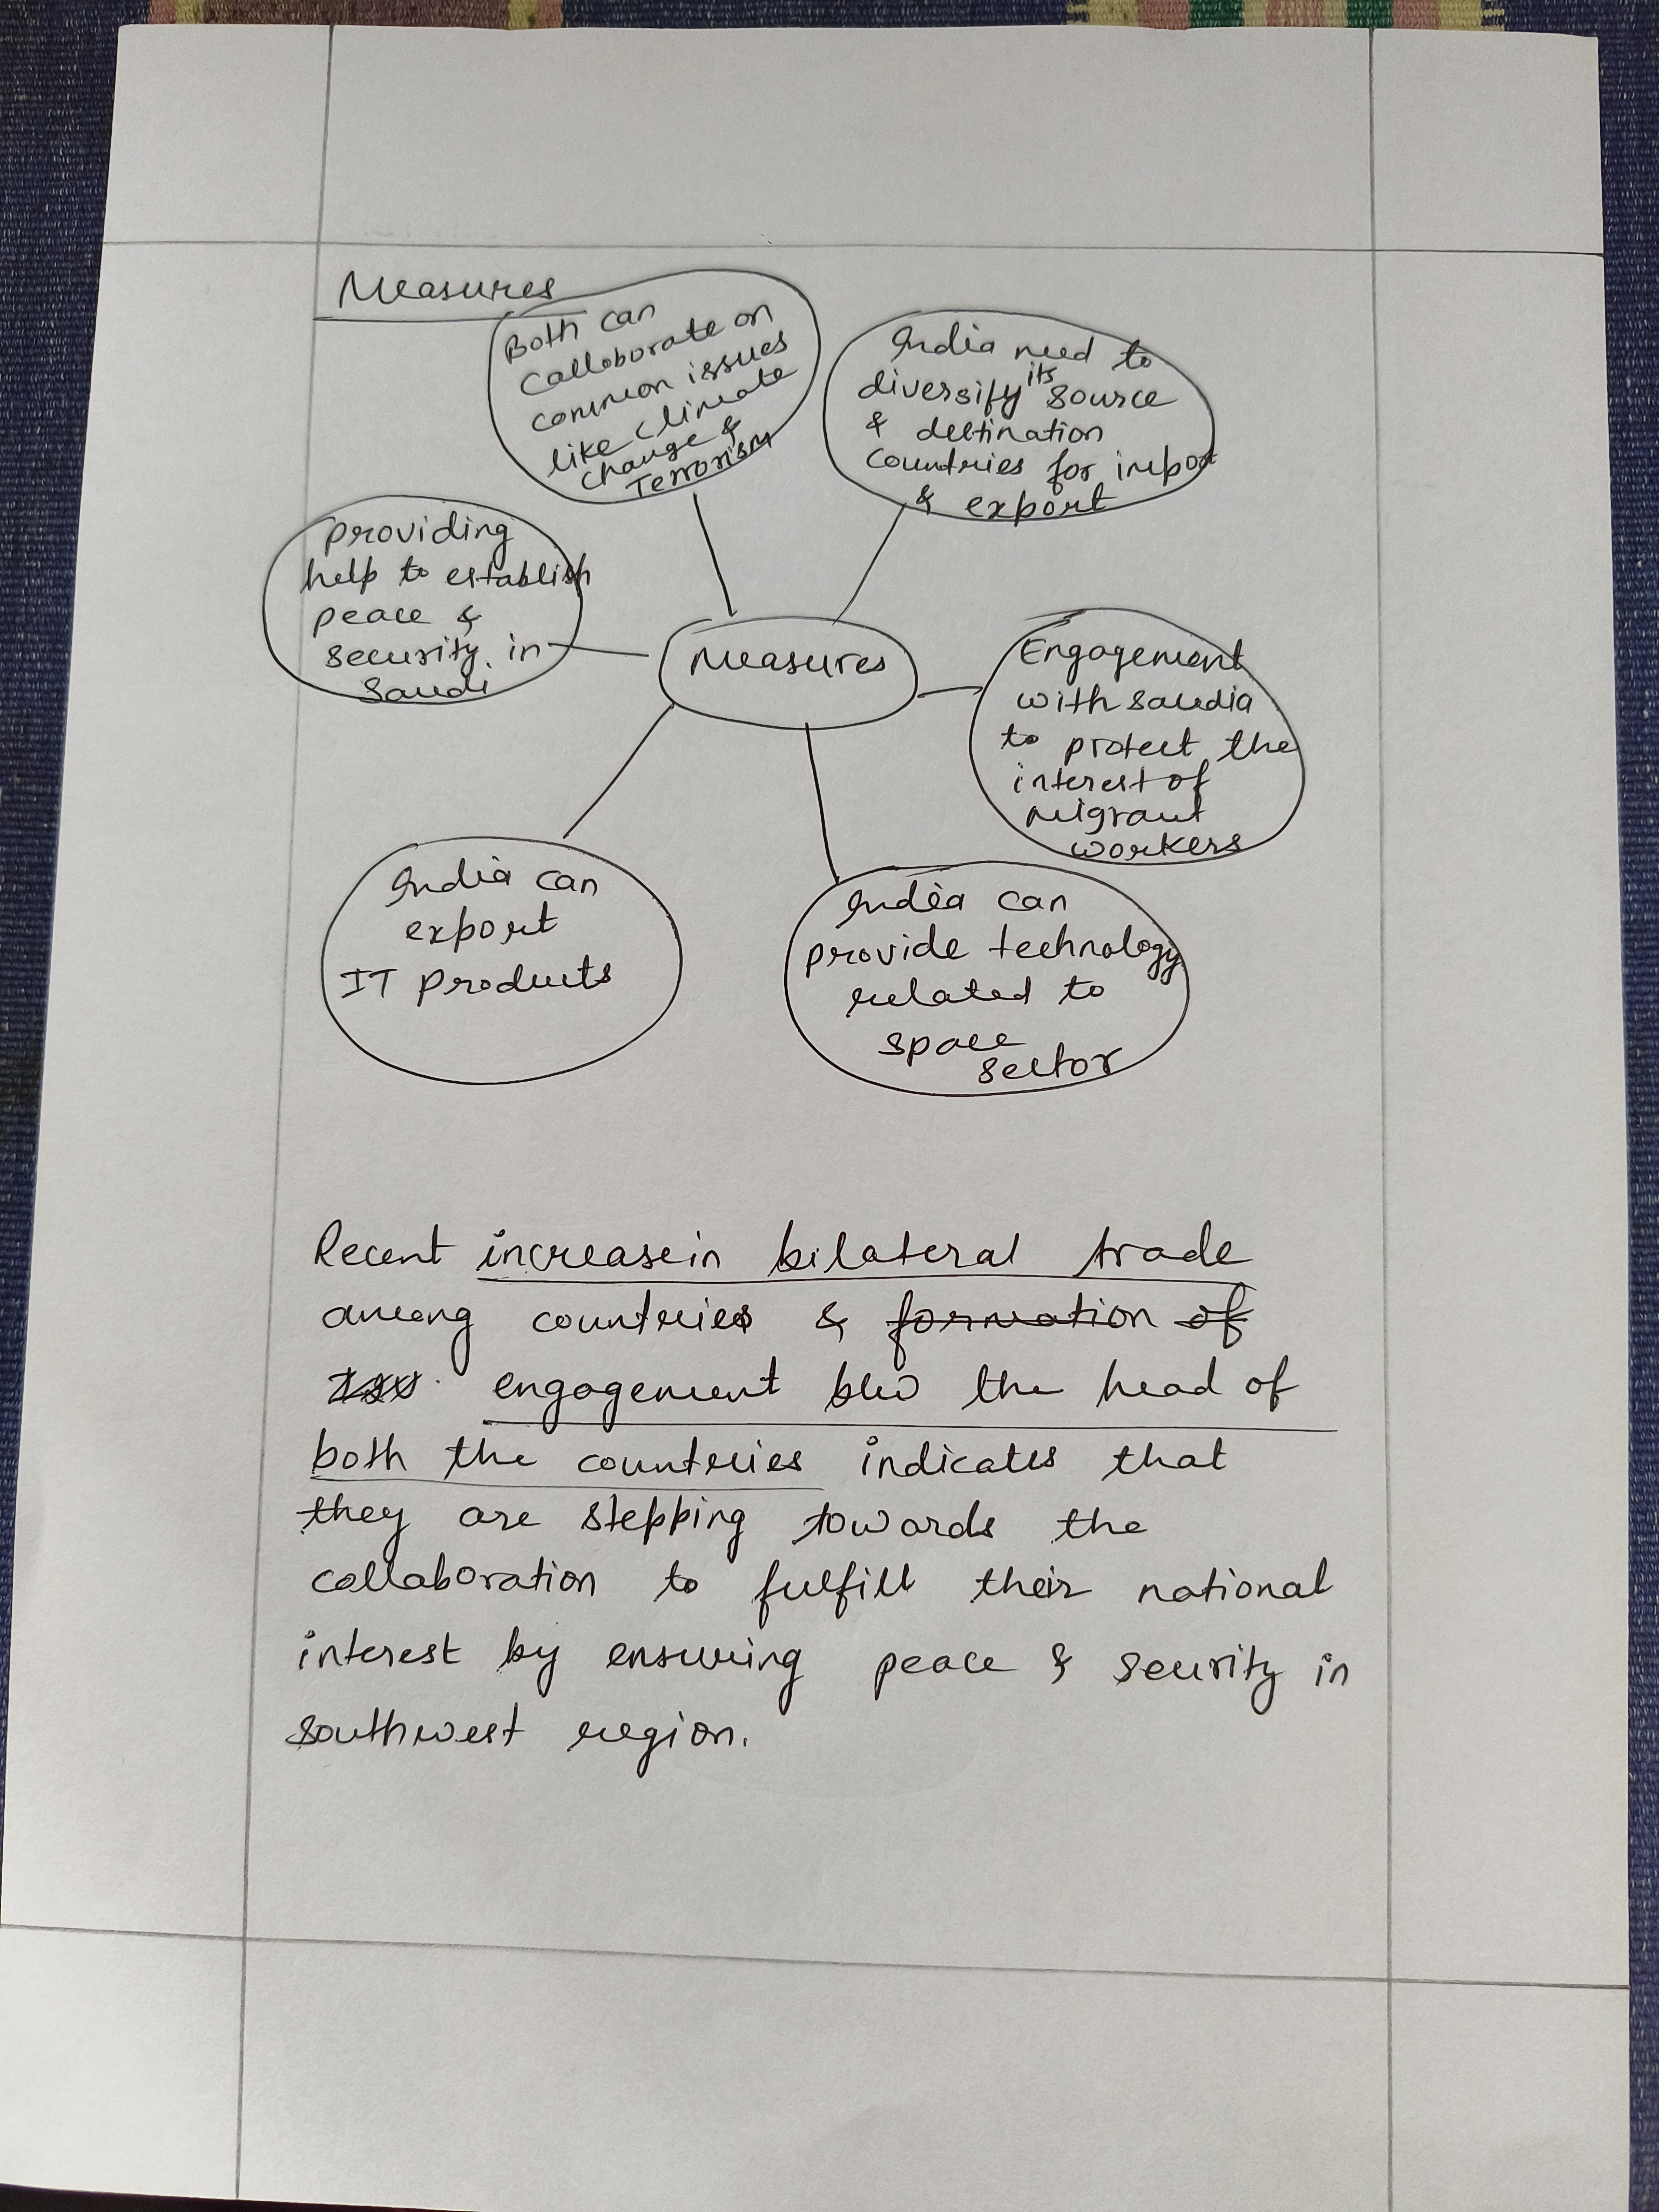 Measures
Both can
Calloborate on
common issues
like climate
change &
Terrorism
India need to
diversify its source
& destination
Countries for import
& export
providing
help to establish
peace &
security in
Saudi
Measures
Engagement
with saudia
to protect the
interest of
migrant
workers
India can
export
IT Products
India can
provide technology
related to
space
sector
Recent increase in bilateral trade
among countries & formation of
engagement btw the head of
both the countries indicates that
they are stepping towards the
collaboration to fulfill their national
interest by ensuring peace & security in
southwest region.